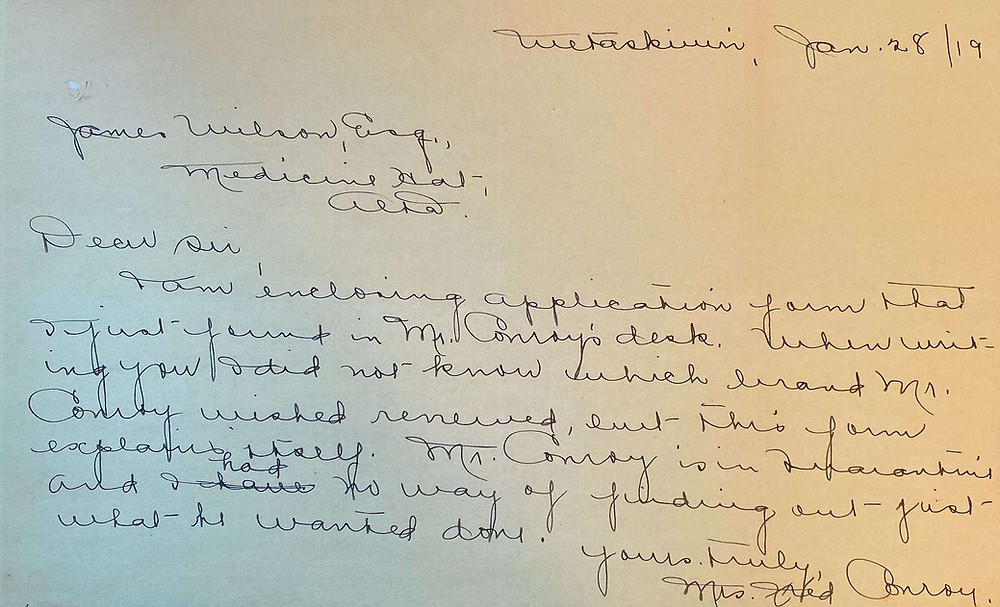 Wetaskiwin, Jan. 28/19
James Wilson, Esq.,
Medicine Hat,
Alta.
Dear Sir,
I am enclosing application form that
I just found in Mr. Conroy's desk. When writ-
ing you I did not know which brand Mr.
Conroy wished renewed, but this form
explains itself. Mr. Conroy is in Quarantine
had
and I have no way of finding out just
what he wanted done.
Yours truly,
Mrs. Fred Conroy.